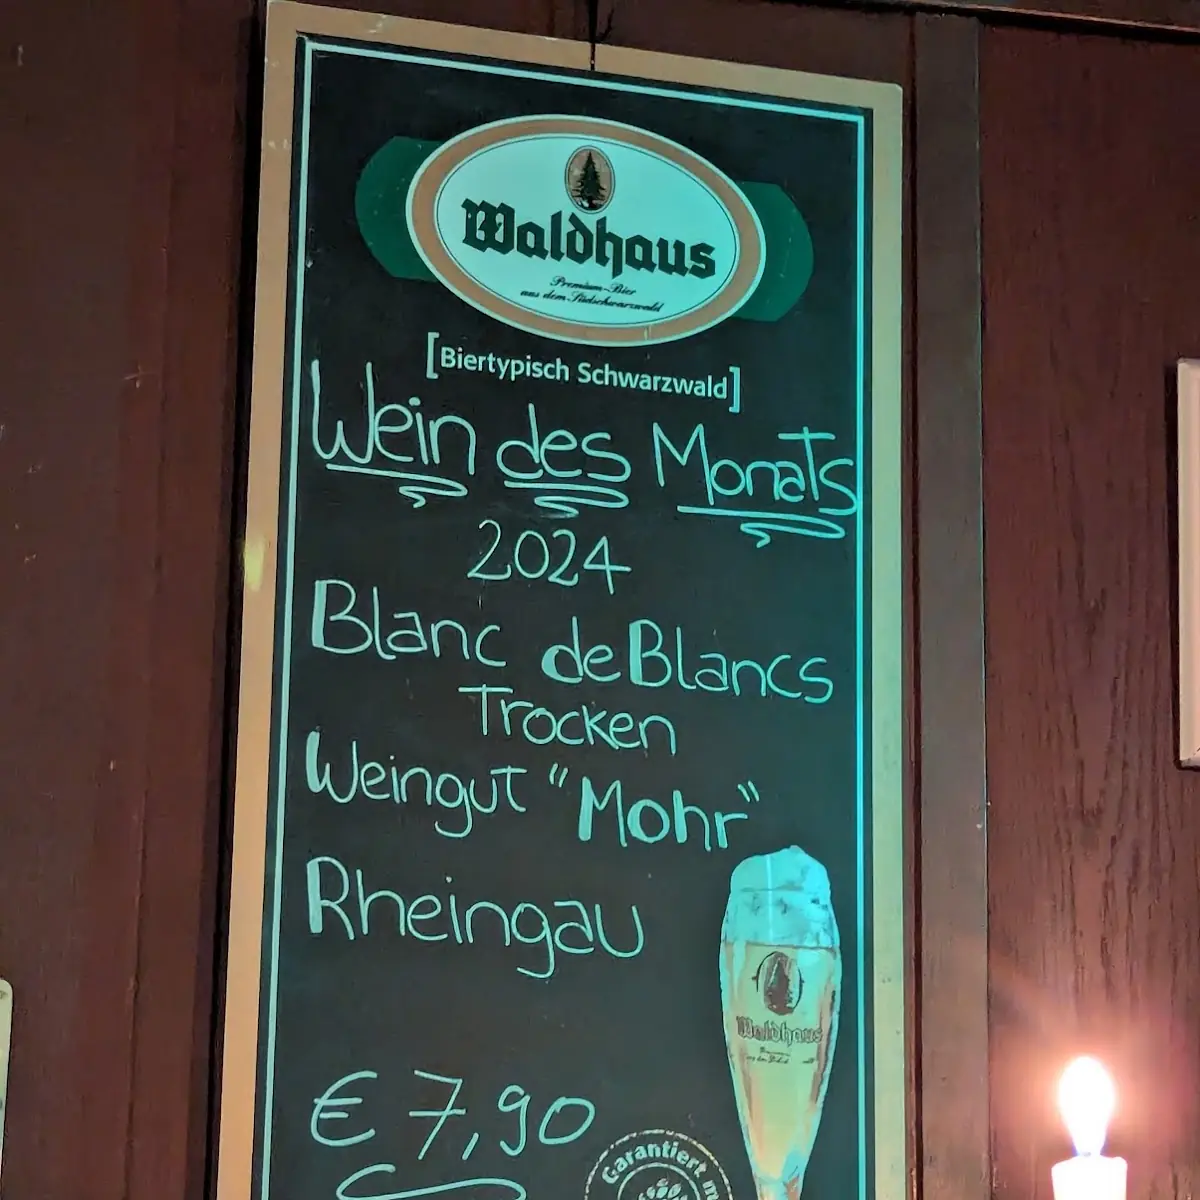 Waldhaus
Premium-Bier
aus dem Südschwarzwald
[Biertypisch Schwarzwald]
Wein des Monats
2024
Blanc de Blancs
Trocken
Weingut "Mohr"
Rheingau
Waldhaus
€ 7,90
Garantiert